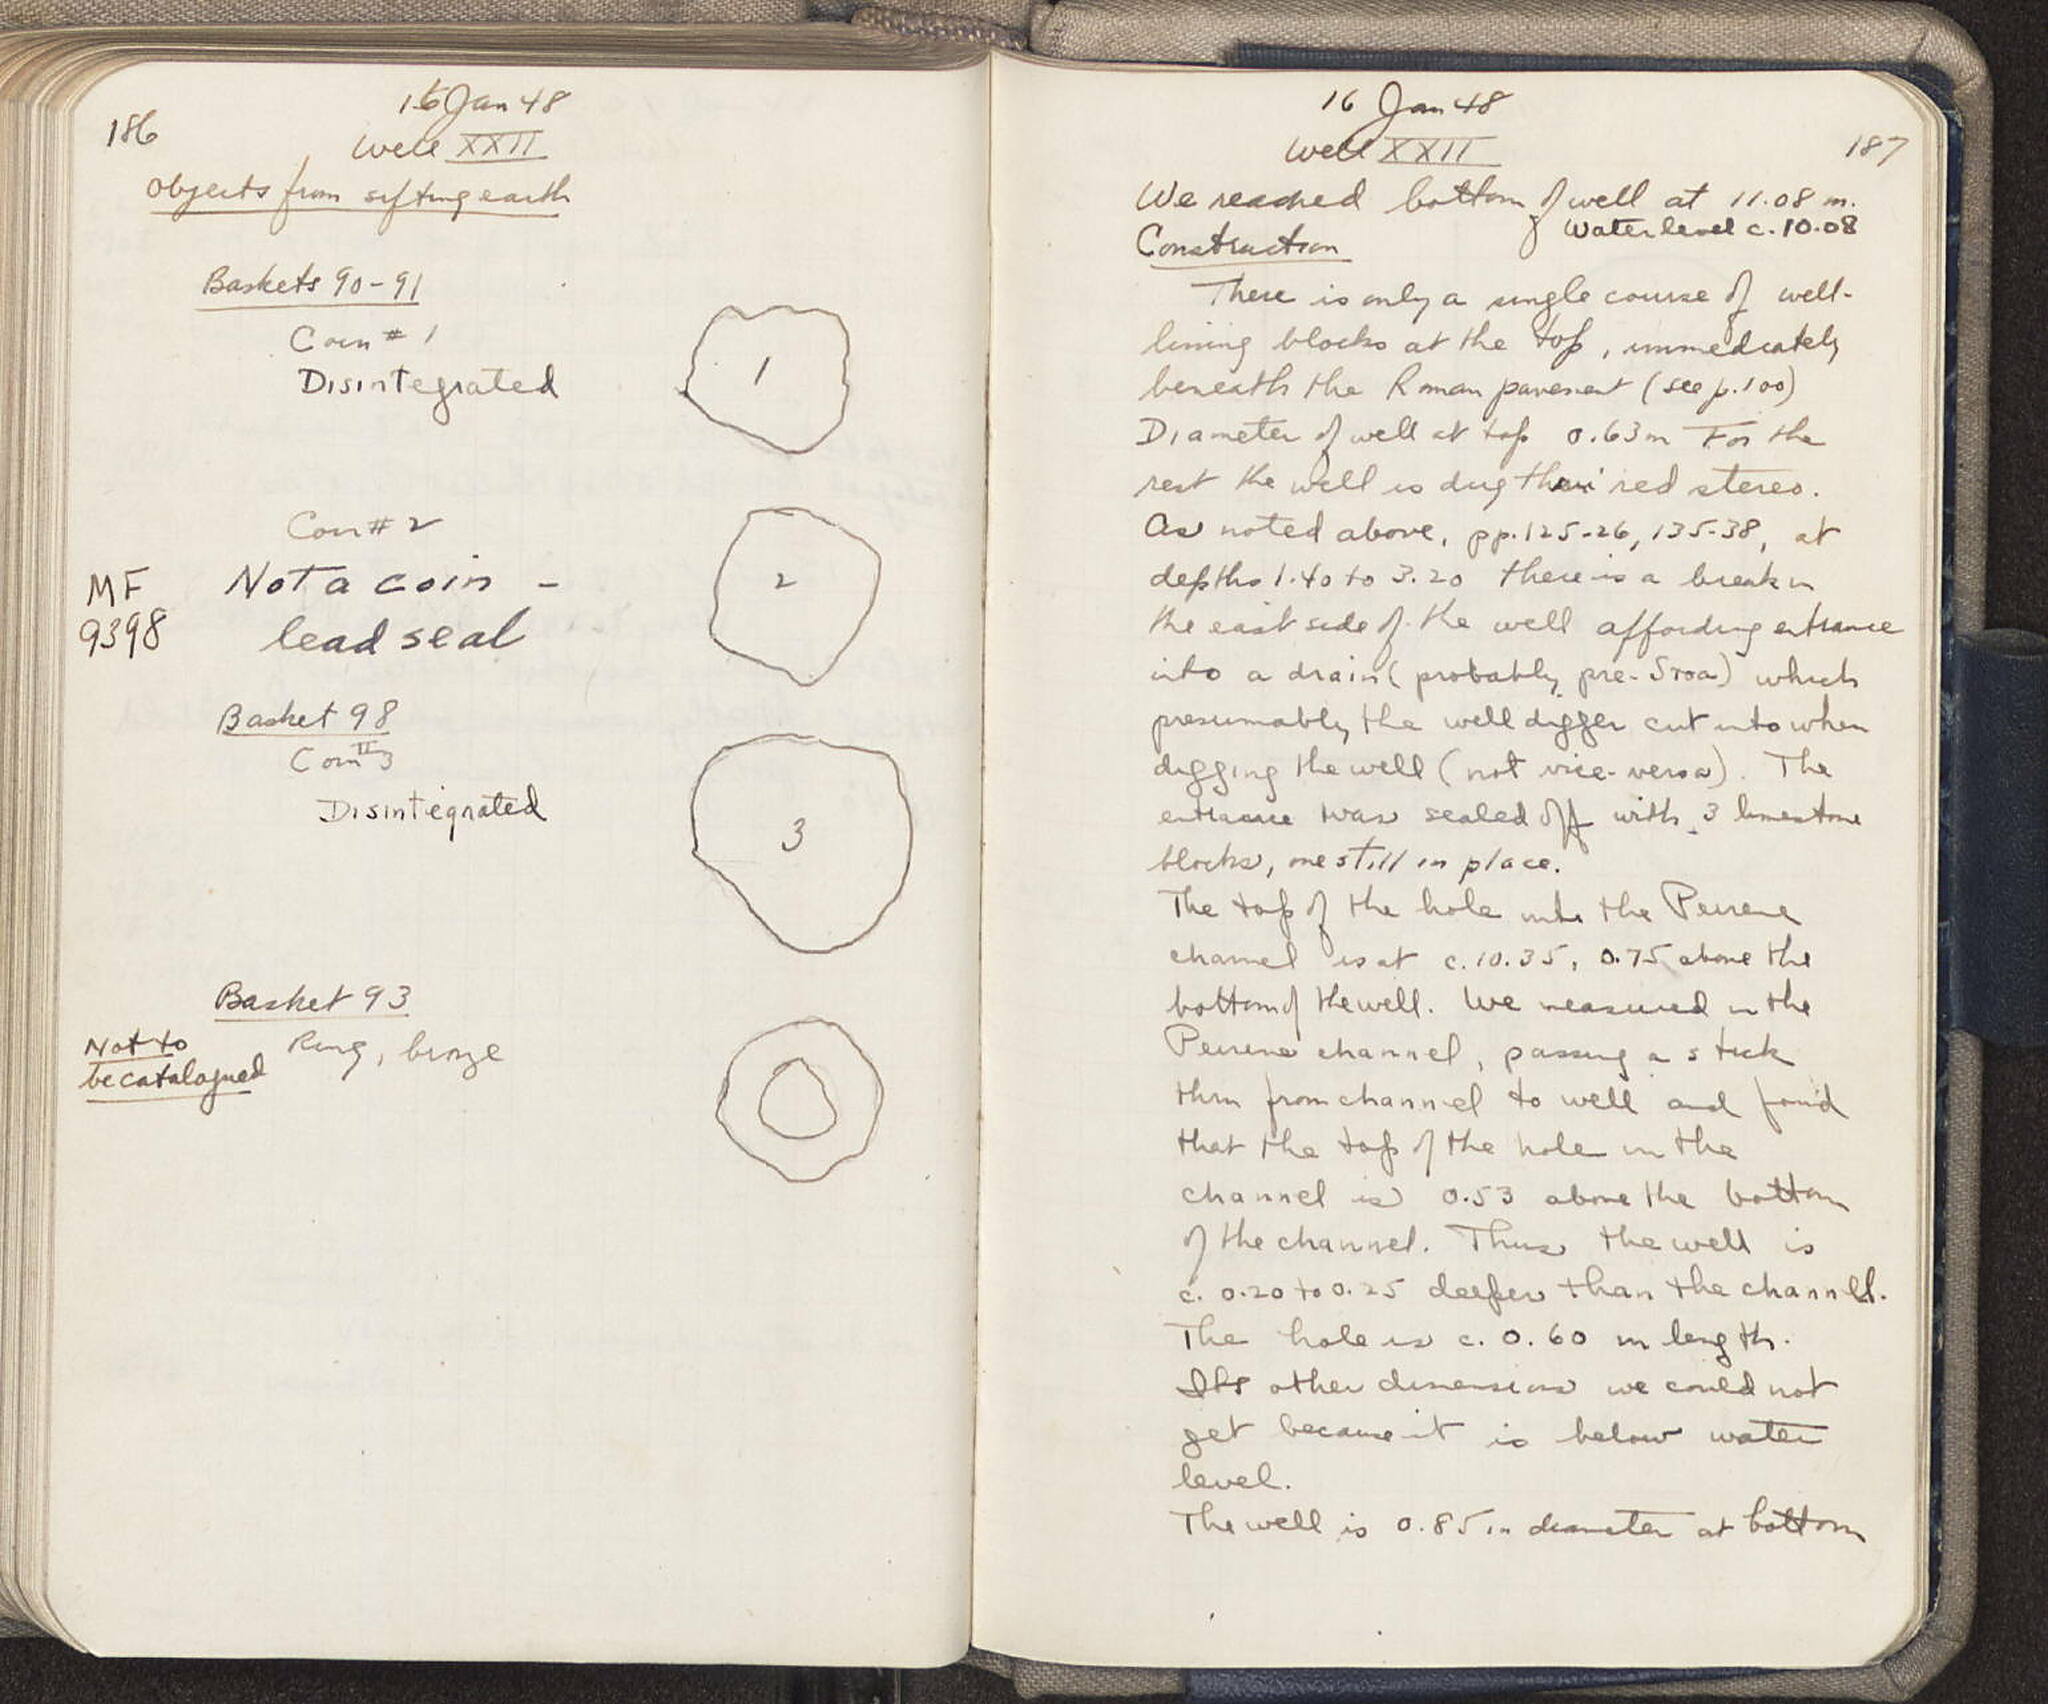 186
16 Jan 48
Well XXII
Objects from sifting earth
Baskets 90-91
Coin # 1
Disintegrated
1
Coin # 2
MF
9398
Not a coin -
lead seal
2
Basket 98
Coin # 3
Disintegrated
3
Basket 93
Not to
be catalogued
Ring, bronze
16 Jan 48
Well XXII
187
We reached bottom of well at 11.08 m.
Water level c. 10.08
Construction
There is only a single course of well-
lining blocks at the top, immediately
beneath the Roman pavement (see p. 100)
Diameter of well at top 0.63m For the
rest the well is dug thru red stereo.
As noted above, pp. 125-26, 135-38, at
depths 1.40 to 3.20 there is a break in
the east side of the well affording entrance
into a drain (probably pre-Stoa) which
presumably the well digger cut into when
digging the well (not vice-versa). The
entrance was sealed off with 3 limestone
blocks, one still in place.
The top of the hole into the Peirene
channel is at c. 10.35, 0.75 above the
bottom of the well. We measured in the
Peirene channel, passing a stick
thru from channel to well and found
that the top of the hole in the
channel is 0.53 above the bottom
of the channel. Thus the well is
c. 0.20 to 0.25 deeper than the channel.
The hole is c. 0.60 in length.
Its other dimensions we could not
get because it is below water
level.
The well is 0.85 in diameter at bottom